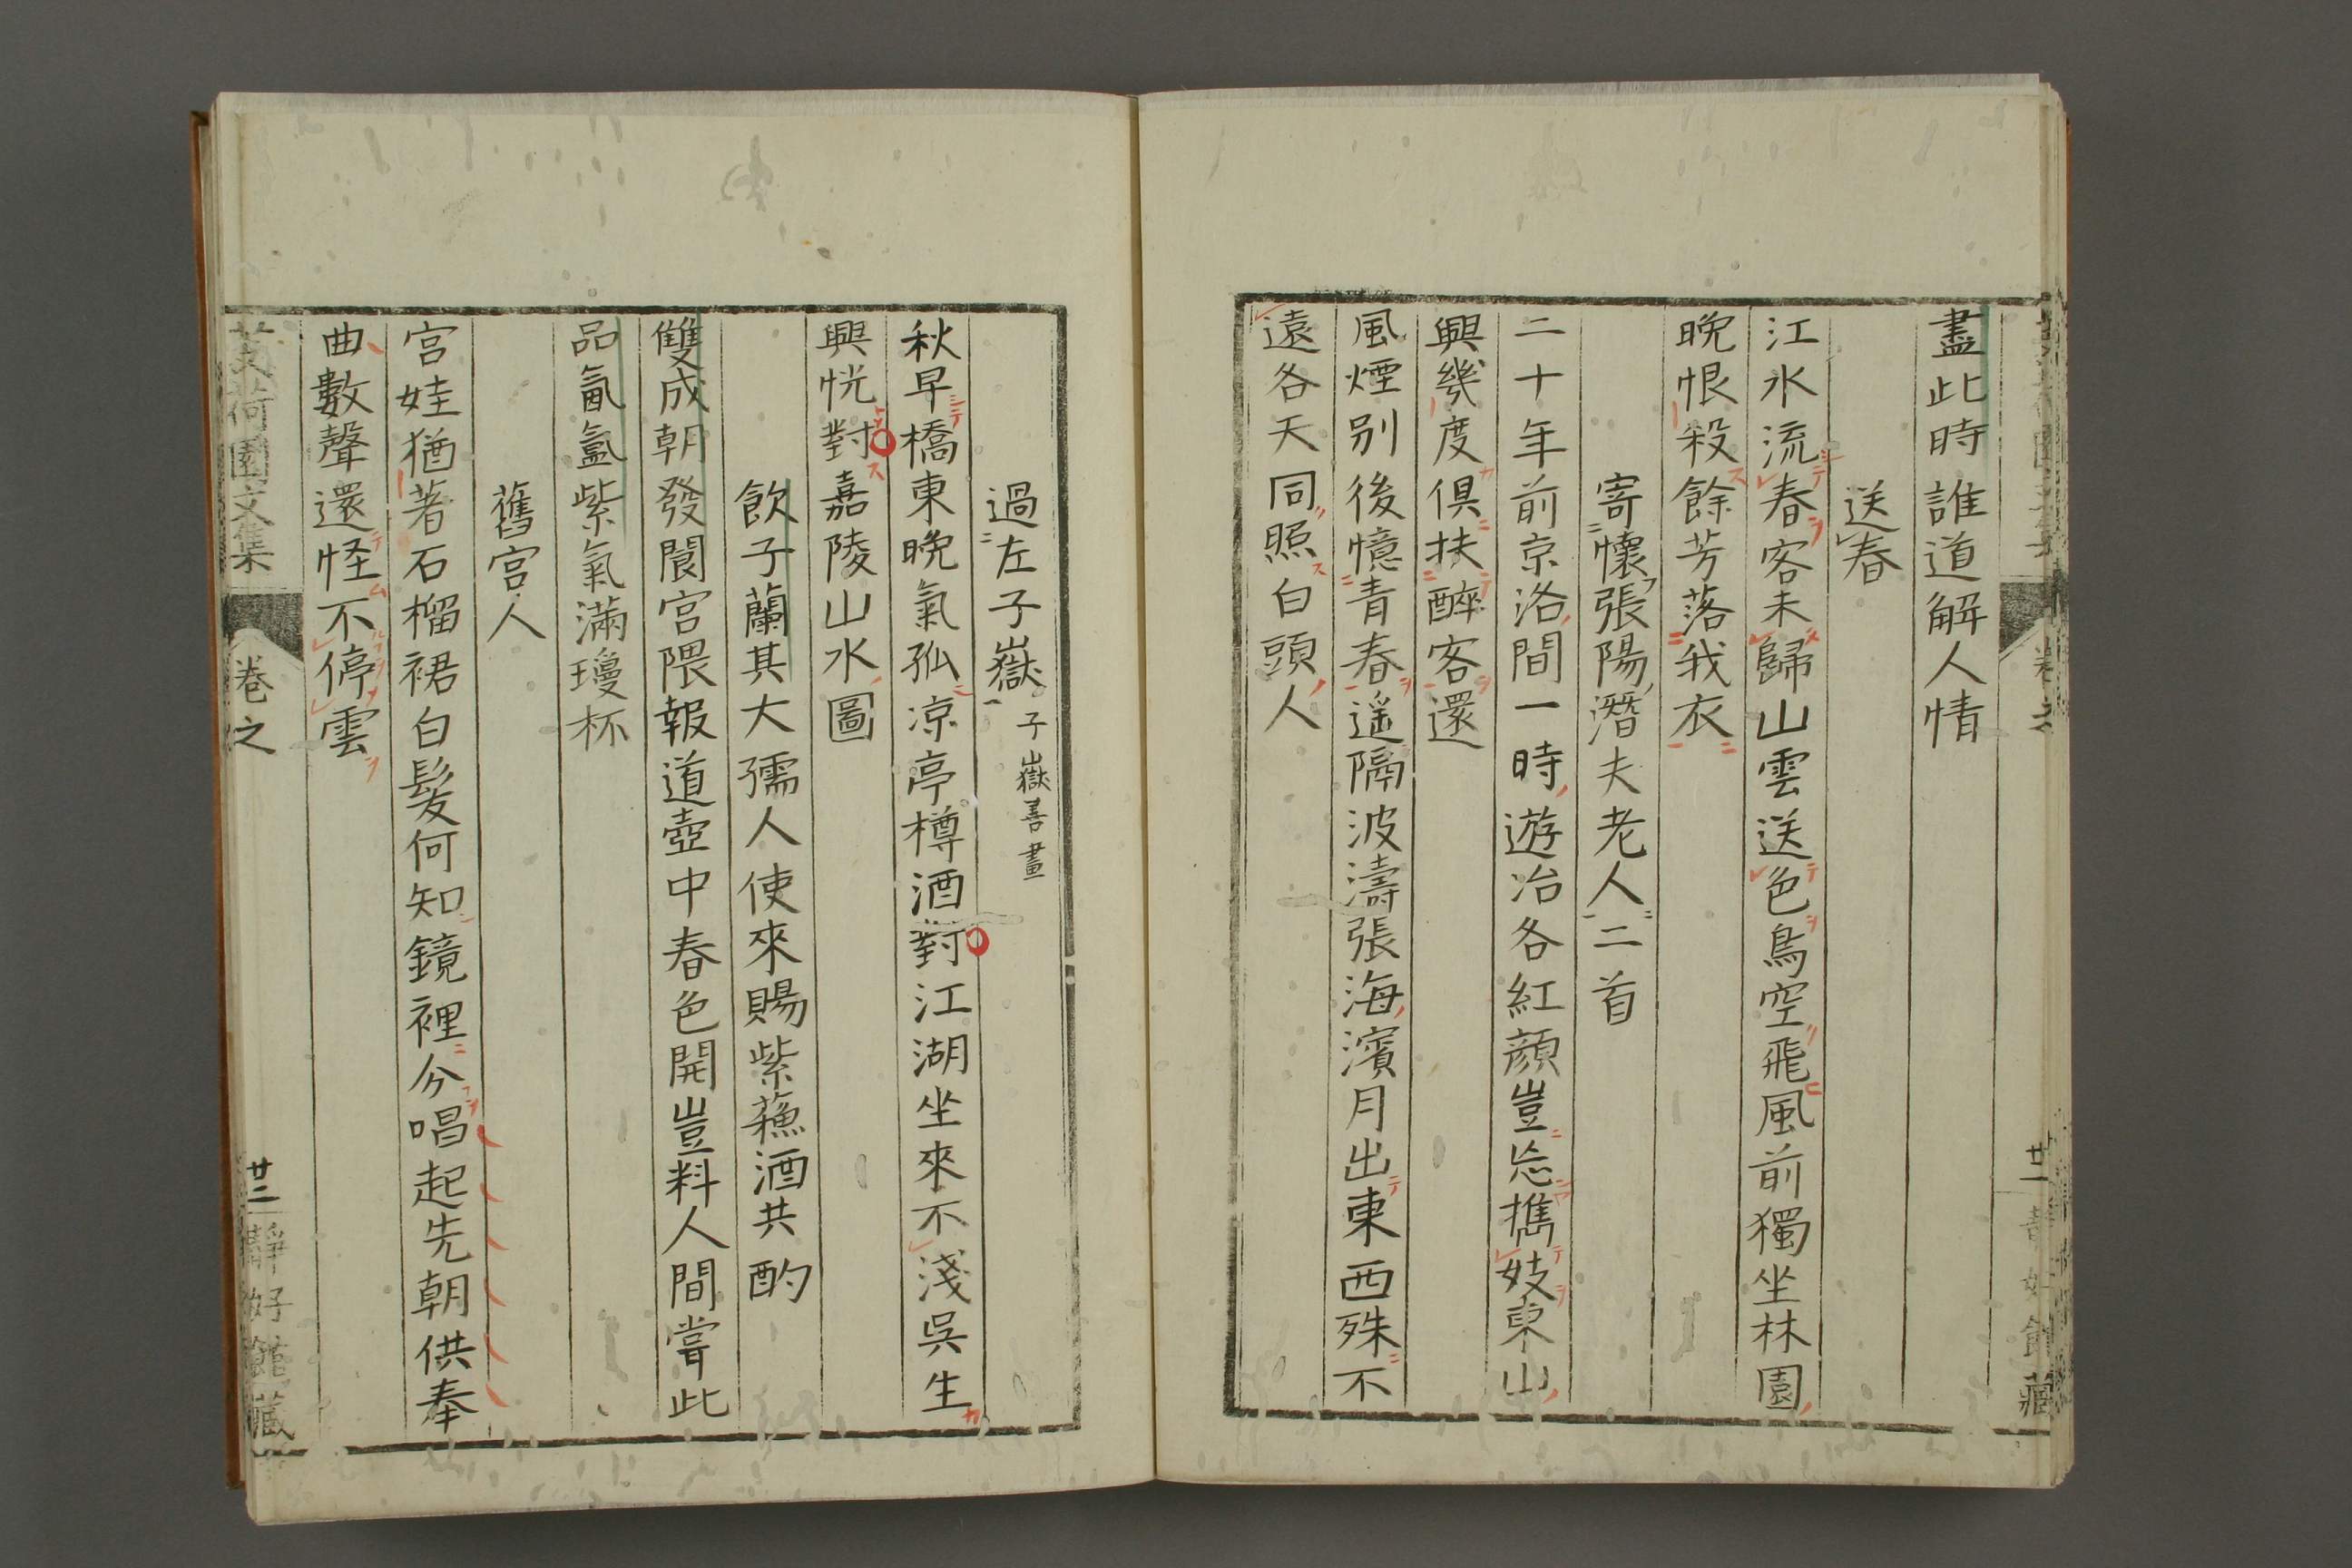 盡此時誰道解人情
送春
江水流春客未歸山雲送色鳥空飛風前獨坐林園
晩恨殺餘芳落我衣
寄懷張陽潛夫老人二首
二十年前京洛間一時遊冶各紅顏豈忘携妓東山
興幾度俱扶醉客還
風煙別後憶青春遥隔波濤張海濱月出東西殊不
遠各天同照白頭人
過左子嶽 子嶽善畫
秋早橋東晩氣孤凉亭樽酒對江湖坐來不淺吳生
興恍對嘉陵山水圖
飲子蘭其大孺人使來賜紫蘓酒共酌
雙成朝發閬宮隈報道壺中春色開豈料人間嘗此
品氤氳紫氣滿瓊杯
舊宮人
宮娃猶著石榴裙白髮何知鏡裡分唱起先朝供奉
曲數聲還怪不停雲
荷園文集
卷之
廿三
靜好館藏